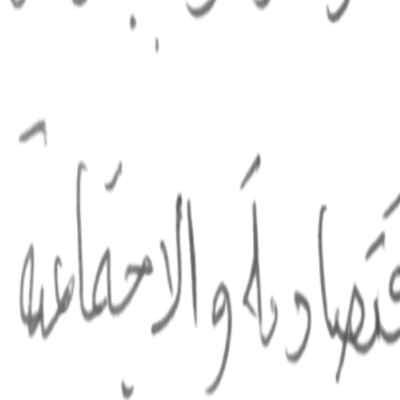 قتصادية والاجتماعية